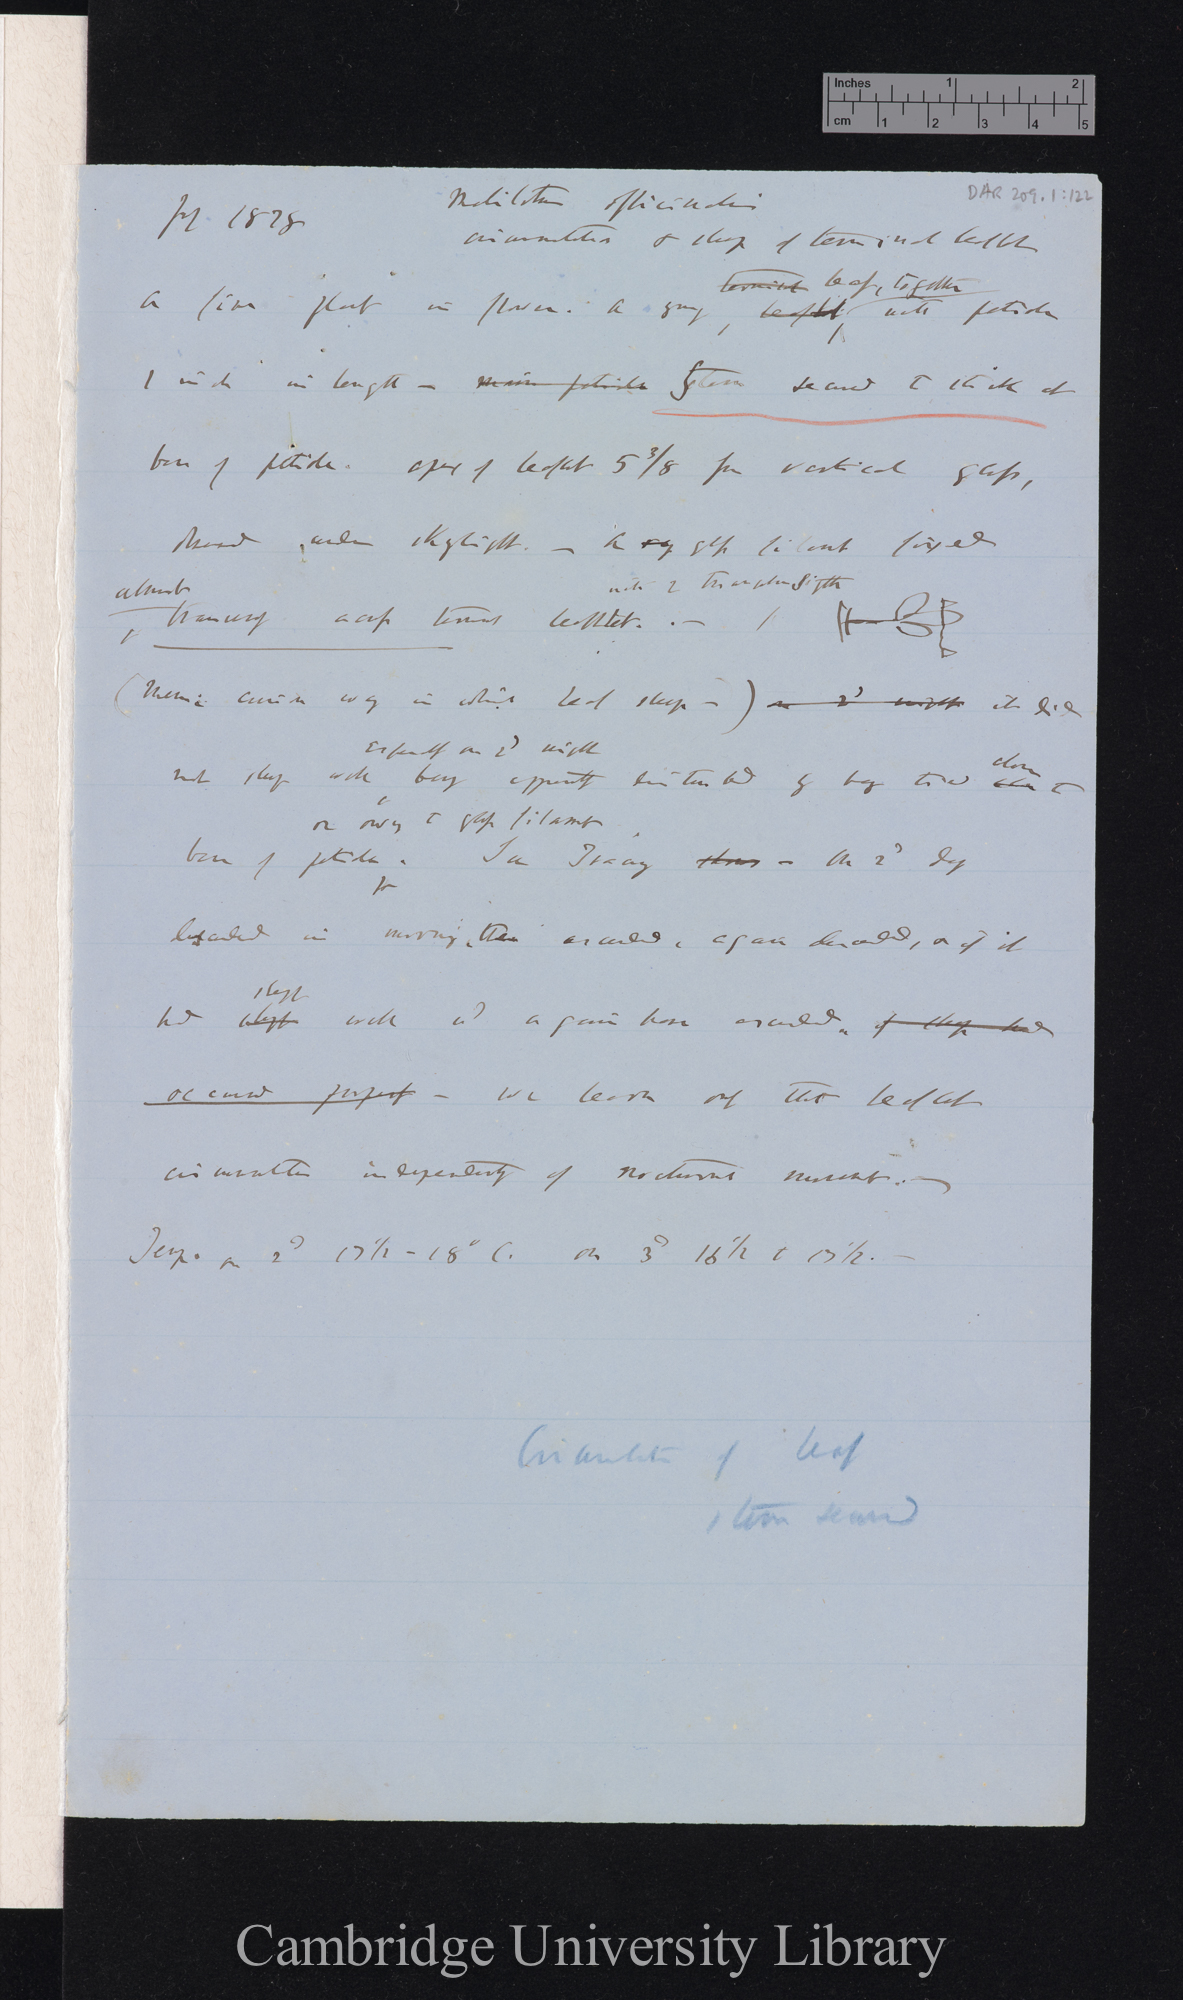 Inches 1 2
cm 1 2 3 4 5
DAR 209.1:122
1878 Melilotus officinalis
circumnutation & sleep of terminal leaflet
terminal leaf, together
A fine plant in flower. A young leaflet, with petiole
1 inch in length — main petiole Stem secured to stick at
base of petiole. apex of leaflet 5 3/8 from vertical glass,
under skylight. — A glass filament fixed
almost with 2 triangles
transversely across terminal leaflet. —
(Mem: curious way in which leaf sleeps —) on 2d night it did
especially on 2d night
not sleep well being apparently disturbed by being tied down to
or owing to glass filament
base of petiole. See Tracing — On 2d day
descended in morning, then ascended, again descended, as if it
slept
had slept well and again have ascended. if sleep had
occurred properly — we learn only that leaflet
circumnutates independently of nocturnal movement. —
Temp. on 2d 17 1/2 - 18° C. on 3d 16 1/2 to 17 1/2. —
Circumnutation of leaf
stem secured
Cambridge University Library